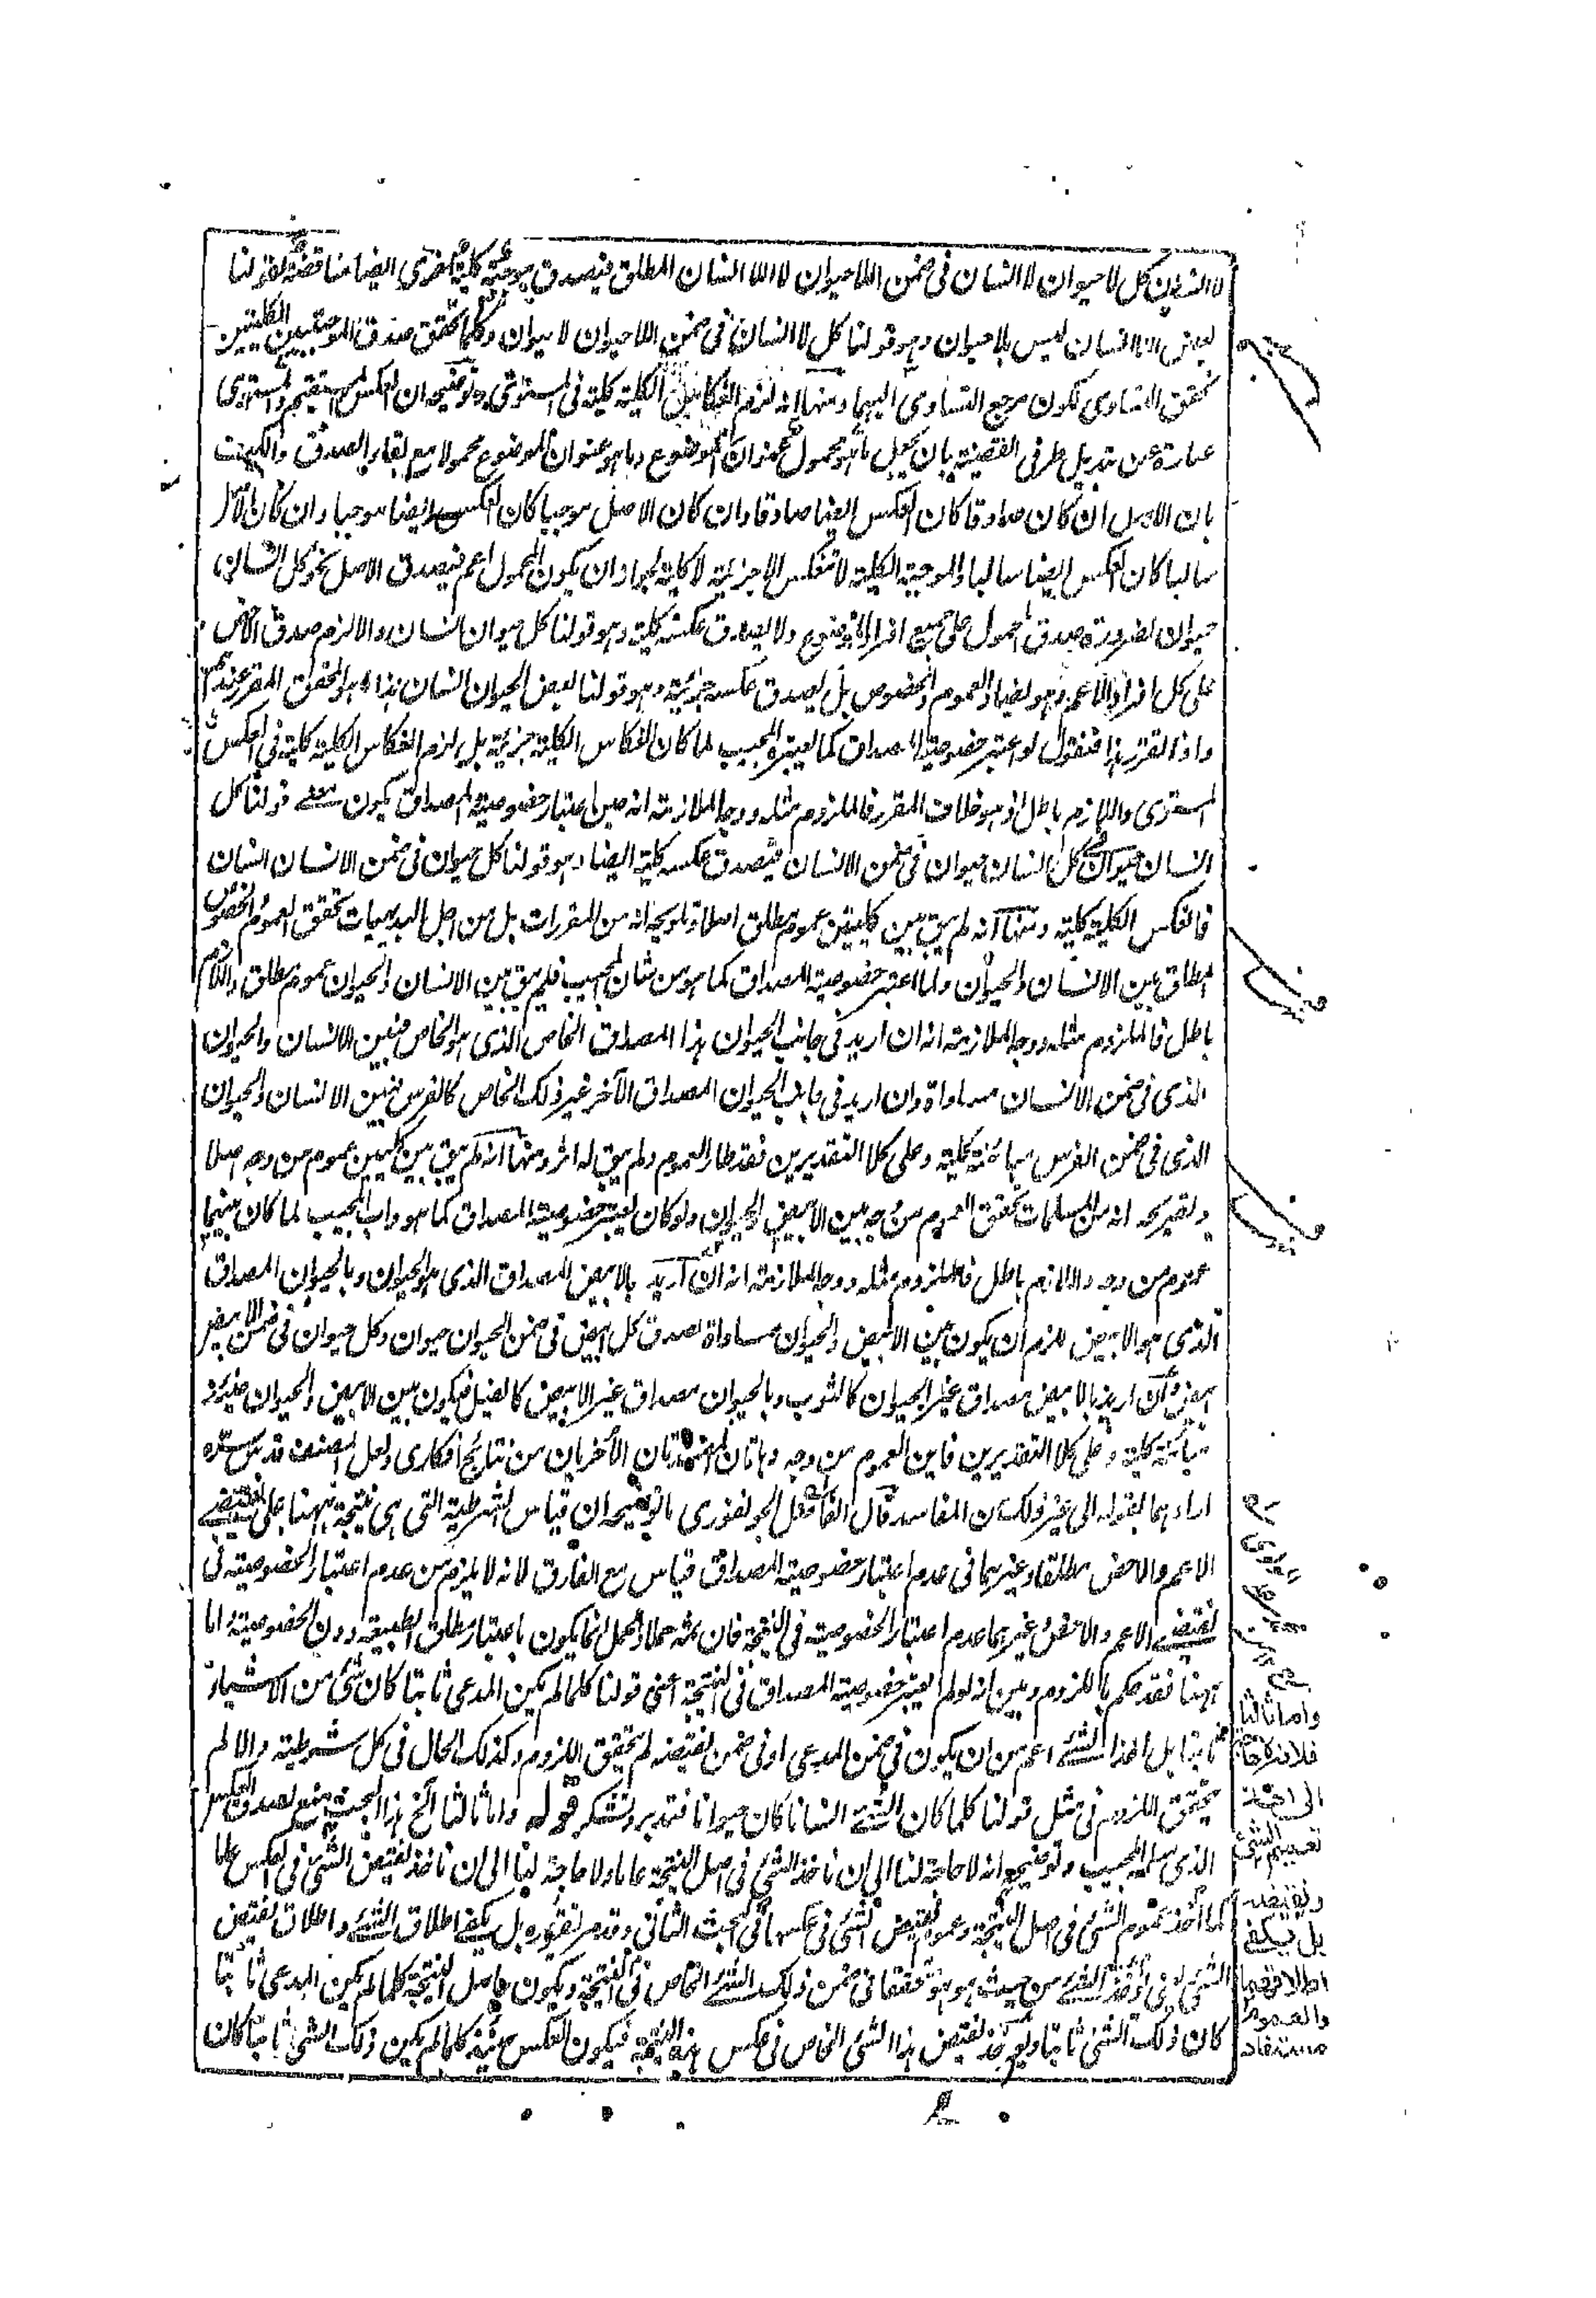 لا انسان كل لا حيوان لا انسان في ضمن اللاحيوان لا اللا انسان المطلق فيصدق موجبة كلية اخرى ايضا مناقضة لقولنا
بعض اللاانسان ليس بلا حيوان وهو قولنا كل لا انسان في ضمن اللاحيوان لا حيوان وكلما تحقق صدق الموجبتين الكليتين
تحقق التساوى لكون مرجع التساوى اليهما ومنها انه لزم انعكاس الكلية كلية في المستوى وتوضيحه ان العكس المستقيم والمستوى
عبارة عن تبديل طرفي القضية بان يجعل ما هو محمول عنوان الموضوع وما هو عنوان الموضوع محمولا مع بقاء الصدق والكيف
بان الاصل ان كان صادقا كان العكس ايضا صادقا وان كان الاصل موجبا كان العكس ايضا موجبا وان كان الاصل
سالبا كان العكس ايضا سالبا والموجبة الكلية لا تنعكس الا جزئية لا كلية لجواز ان يكون المحمول اعم فيصدق الاصل نحو كل انسان
حيوان لضرورة صدق المحمول على جميع افراد الموضوع ولا يصدق عكسه كلية وهو قولنا كل حيوان انسان والا لزم صدق الاخص
على كل افراد الاعم وهو يضاد العموم والخصوص بل يصدق عكسه جزئية وهو قولنا بعض الحيوان انسان هذا هو المحقق المقرر عندهم
واذا تقرر هذا فنقول لو اعتبر خصوصية المصداق كما يعتبره المجيب لما كان انعكاس الكلية جزئية بل لزم انعكاس الكلية كلية في العكس
المستوى واللازم باطل اذ هو خلاف المقرر فالملزوم مثله ووجه الملازمة انه حين اعتبار خصوصية المصداق يكون معنى قولنا كل
انسان حيوان كل انسان حيوان في ضمن الانسان فيصدق عكسه كلية ايضا وهو قولنا كل حيوان في ضمن الانسان انسان
فانعكس الكلية كلية ومنها انه لم يبق بين كليتين عموم مطلق اصلا وتوضيحه انه من المقررات بل من اجل البديهيات تحقق العموم والخصوص
المطلق بين الانسان والحيوان ولما اعتبر خصوصية المصداق كما هو من شان المجيب فلم يبق بين الانسان والحيوان عموم مطلق واللازم
باطل فالملزوم مثله ووجه الملازمة انه ان اريد في جانب الحيوان هذا المصداق الخاص الذى هو الخاص فبين الانسان والحيوان
الذى في ضمن الانسان مساواة وان اريد في جانب الحيوان المصداق الآخر غير ذلك الخاص كالفرس فبين الانسان والحيوان
الذى في ضمن الفرس مباينة كلية وعلى كلا التقديرين فقد طار العموم ولم يبق له اثر ومنها انه لم يبق بين كليين عموم من وجه اصلا
وتقريره انه من المسلمات تحقق العموم من وجه بين الابيض والحيوان ولو كان يعتبر خصوصية المصداق كما هو داب المجيب لما كان بينهما
عموم من وجه واللازم باطل فالملزوم مثله ووجه الملازمة انه ان اريد بالابيض المصداق الذى هو الحيوان وبالحيوان المصداق
الذى هو الابيض للزم ان يكون بين الابيض والحيوان مساواة لصدق كل ابيض في ضمن الحيوان حيوان وكل حيوان في ضمن الابيض
ابيض وان اريد بالابيض مصداق غير الحيوان كالثوب وبالحيوان مصداق غير الابيض كالفيل فيكون بين الابيض والحيوان حينئذ
تباينة كلية وعلى كلا التقديرين فاين العموم من وجه وهاتان الاخريان من نتائج افكارى ولعل المصنف قدس سره
ارادهما بقوله الى غير ذلك من المفاسد قال الفاضل الجونفورى ما توضيحه ان قياس الشرطية التى هى نتيجة ههنا على نقيضى
الاعم والاخص مطلقا وغيرهما في عدم اعتبار خصوصية المصداق قياس مع الفارق لانه لا يلزم من عدم اعتبار الخصوصية في
نقيضى الاعم والاخص وغيرهما عدم اعتبار الخصوصية في النتيجة فان ثمه حملا والحمل انما يكون باعتبار مطلق الطبيعة دون الخصوصية واما
ههنا فقد حكم باللزوم وبين انه لو لم يعتبر خصوصية المصداق في النتيجة اعنى قولنا كلما لم يكن المدعى ثابتا كان شئ من الاشياء
ثابتا بل اخذ الشئ اعم من ان يكون في ضمن المدعى او في ضمن نقيضه لم يتحقق اللزوم وكذلك الحال في كل شرطية والا لم
يتحقق اللزوم في مثل قولنا كلما كان الشئ انسانا كان حيوانا فتدبر وتشكر قوله واما ثالثا الخ هذا البحث منع لصدق العكس
الذى سلمه المجيب وتوضيحه انه لا حاجة لنا الى ان ناخذ الشئ في اصل النتيجة عاما ولا حاجة لنا الى ان ناخذ نقيض الشئ في العكس عاما
كما اخذ عموم الشئ في اصل النتيجة وعموم نقيض الشئ في عكسها في البحث الثانى وقد مر تقريره بل يكفى اطلاق الشئ واطلاق نقيض
الشئ من حيث هو هو متحققا في ضمن ذلك الشئ الخاص في النتيجة ويكون حاصل النتيجة كلما لم يكن المدعى ثابتا
كان ذلك الشئ ثابتا ويوخذ نقيض هذا الشئ الخاص في عكس هذه النتيجة فيكون العكس حينئذ كلما لم يكن ذلك الشئ ثابتا كان
واما ثالثا
فلانه لا حاجة
الى اخذ
تعميم الشئ
ونقيضه
بل يكفى
اطلاقهما
والعموم
مستفاد